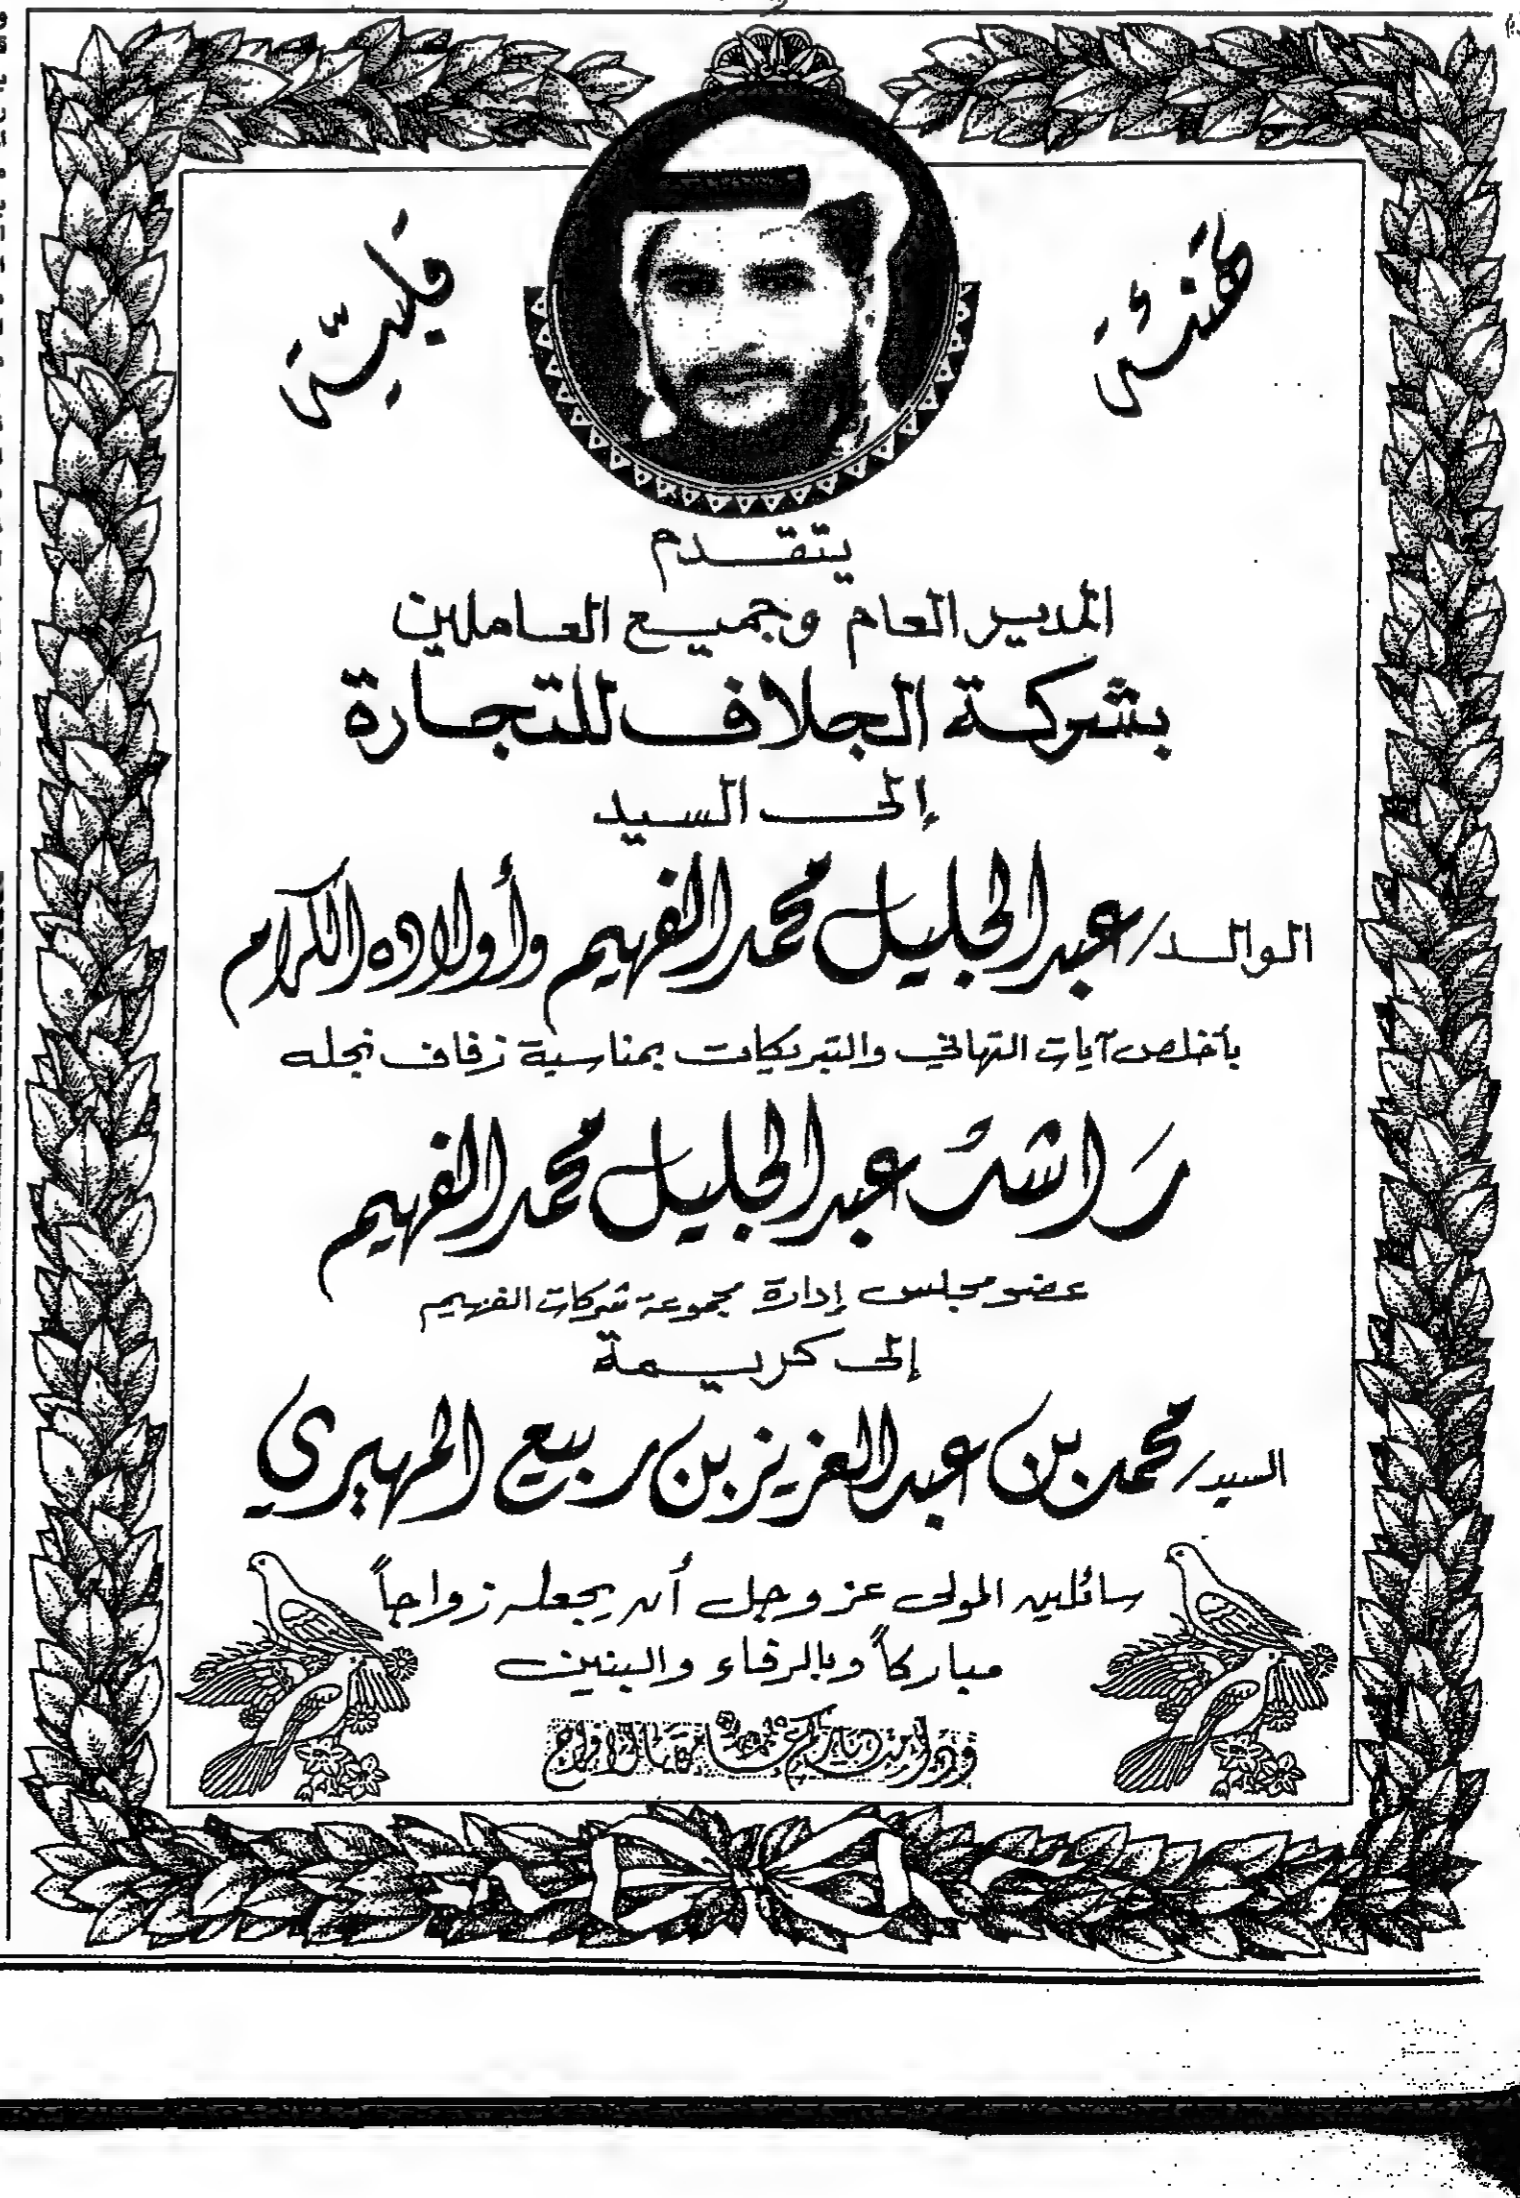 تهنئة قلبية
يتقدم
المدير العام وجميع العاملين
بشركة الجلاف للتجارة
إلى السيد
الوالد/ عبد الجليل محمد الفهيم وأولاده الكرام
بأخلص آيات التهاني والتبريكات بمناسبة زفاف نجله
راشد عبد الجليل محمد الفهيم
عضو مجلس إدارة مجموعة شركات الفهيم
إلى كريمة
السيد/ محمد بن عبد العزيز بن ربيع المهيري
سائلين المولى عز وجل أن يجعله زواجاً
مباركاً وبالرفاء والبنين
ودامت دياركم عامرة بالأفراح